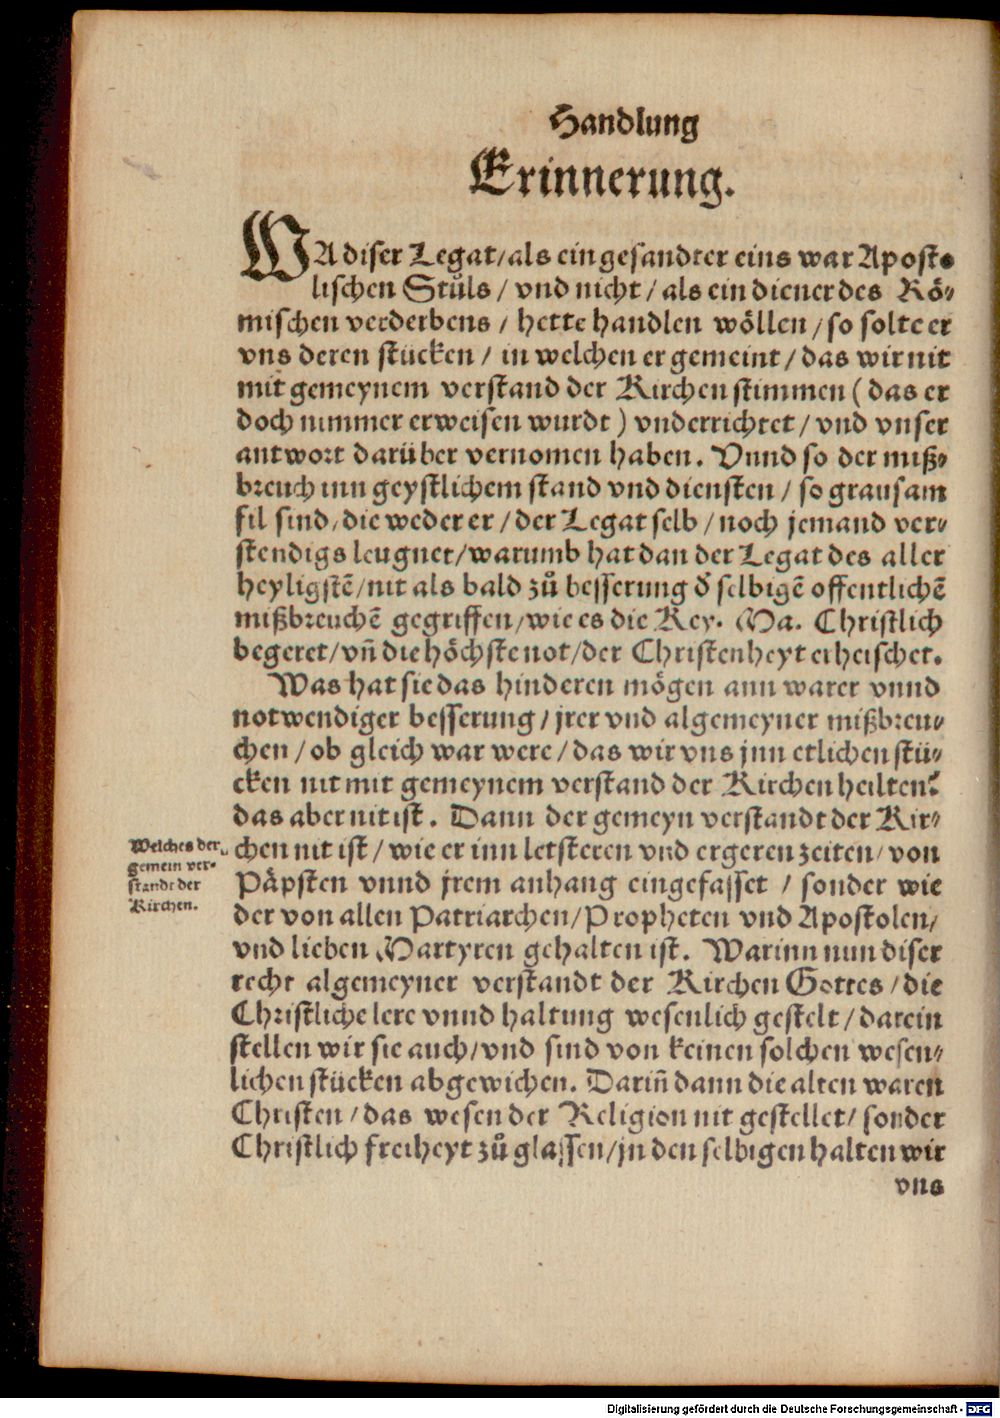 Handlung
Erinnerung.
WA diser Legat/als ein gesandter eins war Aposto
lischen Stůls / vnd nicht / als ein diener des Rö⸗
mischen verderbens / hette handlen wöllen / so solte er
vns deren stücken / in welchen er gemeint / das wir nit
mit gemeynem verstand der Kirchen stimmen ( das er
doch nimmer erweisen wurdt ) vnderrichtet / vnd vnser
antwort darüber vernomen haben. Vnnd so der miß⸗
breuch inn geystlichem stand vnd diensten / so grausam
fil sind/die weder er / der Legat selb / noch jemand ver⸗
stendigs leugnet/warumb hat dan der Legat des aller
heyligstē/nit als bald zů besserung ď selbigē offentlichē
mißbreuchē gegriffen/wie es die Key. Ma. Christlich
begeret/vñ die höchste not/der Christenheyt erheischet.
Was hat sie das hinderen mögen ann warer vnnd
notwendiger besserung / jrer vnd algemeyner mißbreu⸗
chen / ob gleich war were / das wir vns jnn etlichen stü⸗
cken nit mit gemeynem verstand der Kirchen heilten?
das aber nit ist. Dann der gemeyn verstandt der Kir⸗
chen nit ist / wie er inn letsteren vnd ergeren zeiten/ von
Päpsten vnnd jrem anhang eingefasset / sonder wie
der von allen Patriarchen/Propheten vnd Apostolen/
vnd lieben Martyren gehalten ist. Warinn nun diser
recht algemeyner verstandt der Kirchen Gottes / die
Christliche lere vnnd haltung wesenlich gestelt / darein
stellen wir sie auch/vnd sind von keinen solchen wesen⸗
lichen stücken abgewichen. Dariñ dann die alten waren
Christen / das wesen der Religion nit gestellet/ sonder
Christlich freiheyt zů glassen/jn den selbigen halten wir
vns
Welches der
gemein ver⸗
standt der
Kirchen.
Digitalisierung gefördert durch die Deutsche Forschungsgemeinschaft - DFG